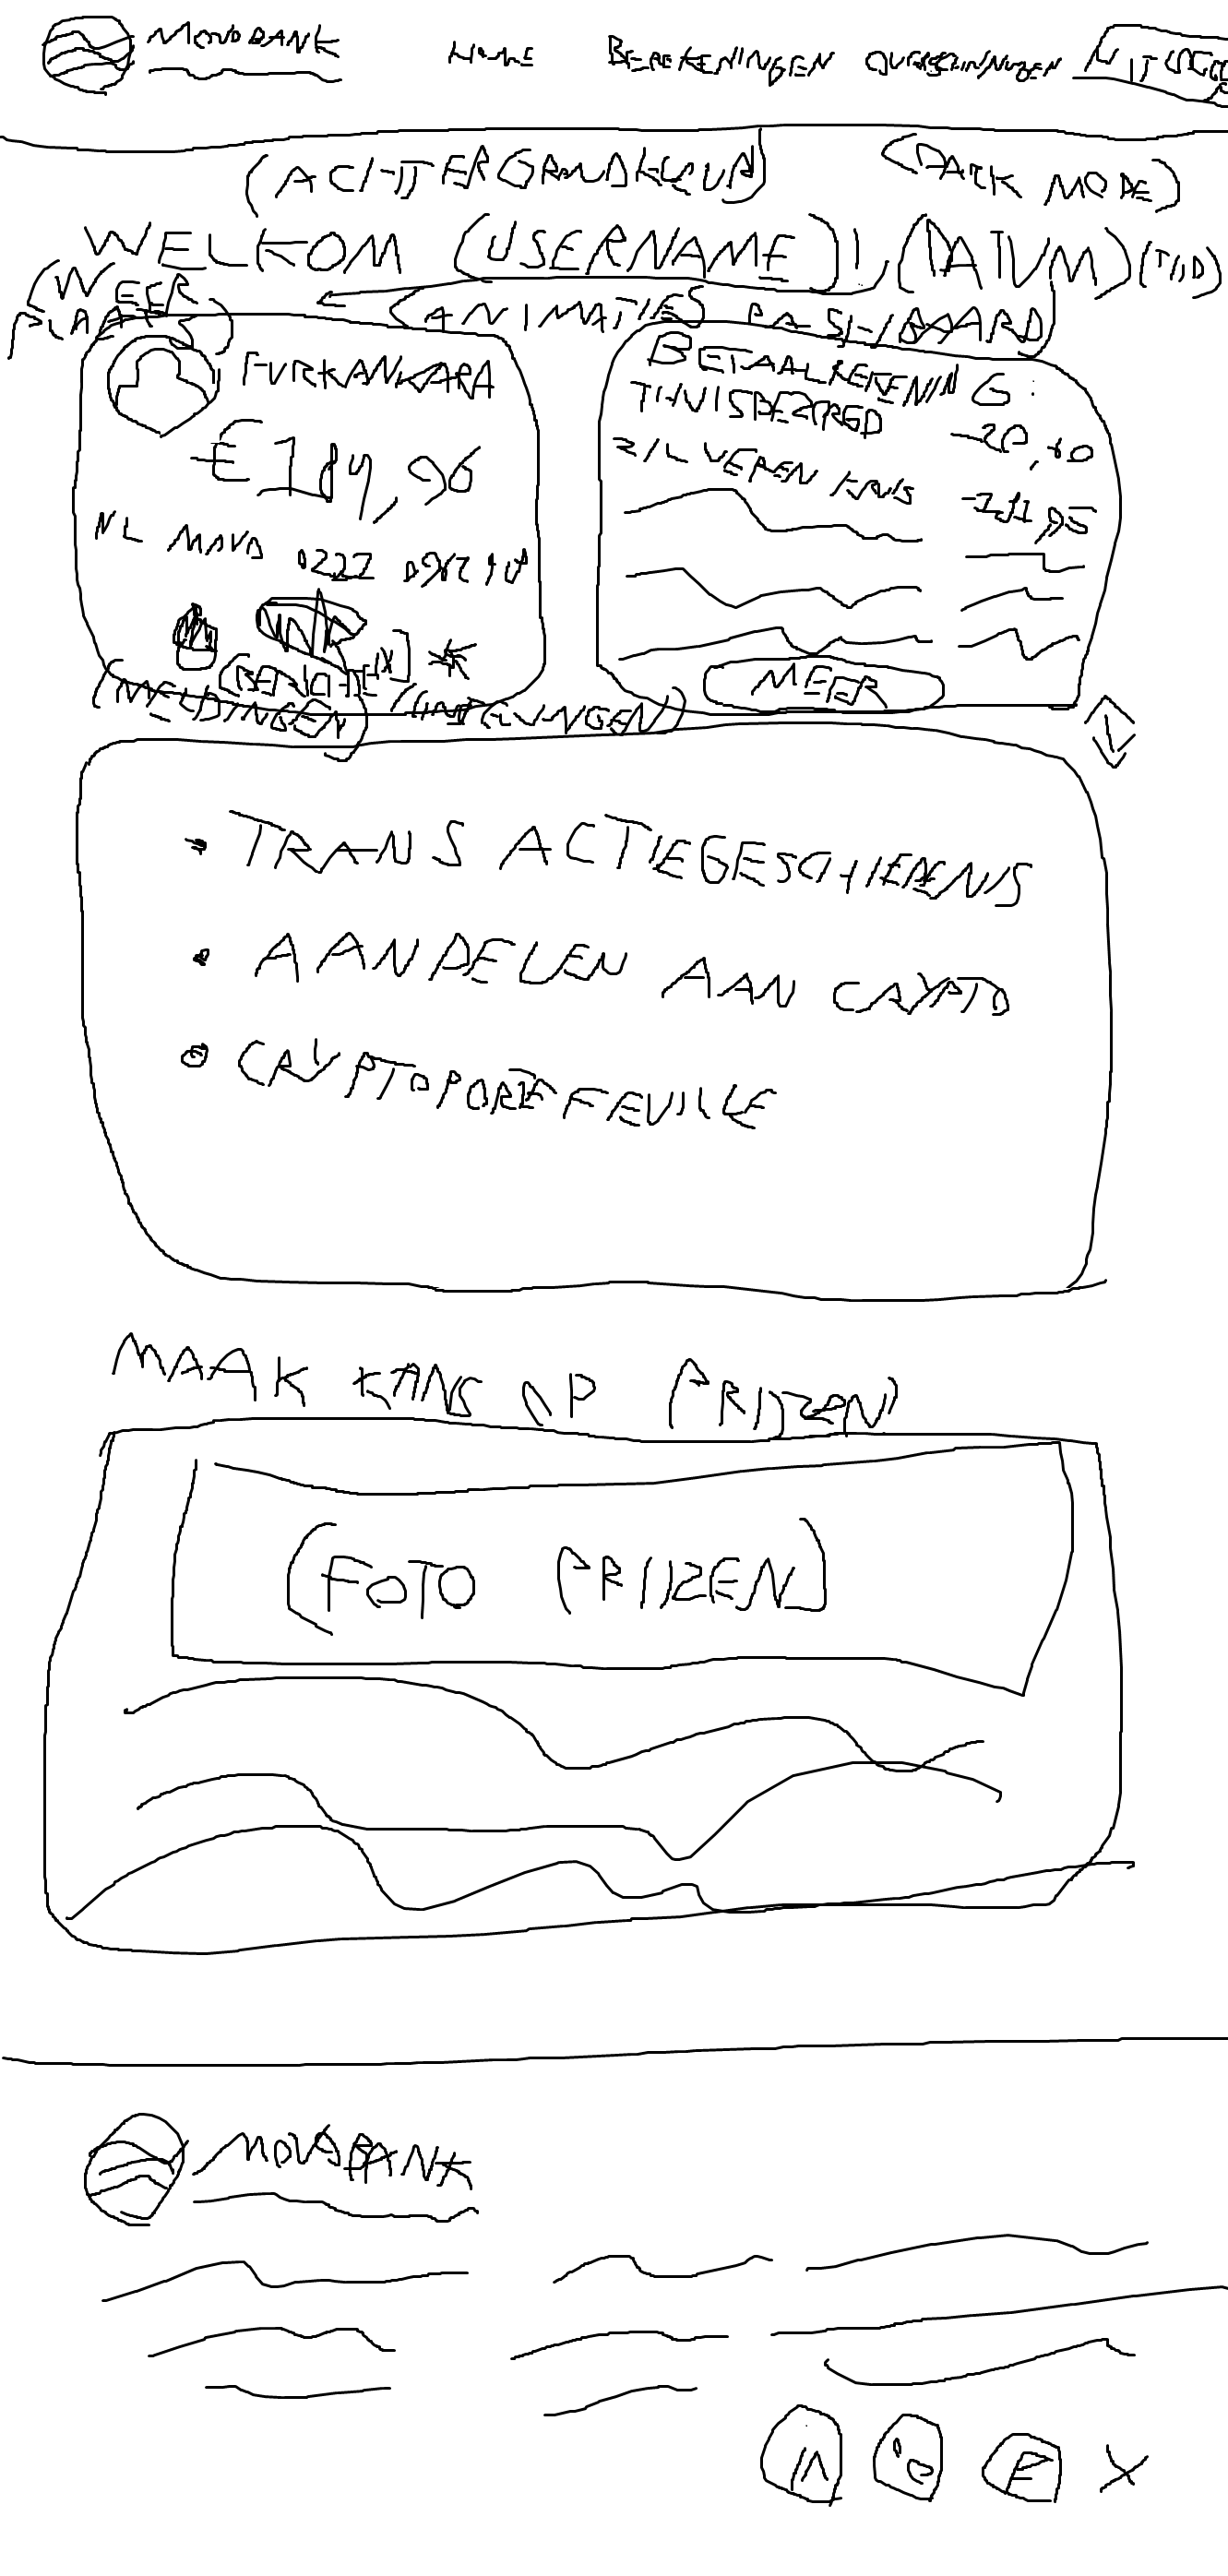 MOVOBANK HOME BEREKENINGEN
(ACHTTERGRONDKLEUR) (DARK MODE)
WELKOM (USERNAME)!, (DATUM) (TIJD)
(WEER
PLAATS) (ANIMATIES DASHBAARD)
FURKANKARA
€184,96
NL MOVO 0222
(MELDINGEN)
BETAALREKENING:
THUISBEZORGD -20,40
ZILVEREN KRUIS -111,95
MEER
• TRANSACTIEGESCHIEDENIS
• AANDELEN AAN CRYPTO
• CRYPTOPORTEFEUILLE
MAAK KANS OP PRIJZEN
(FOTO PRIJZEN)
MOVABANK
F X